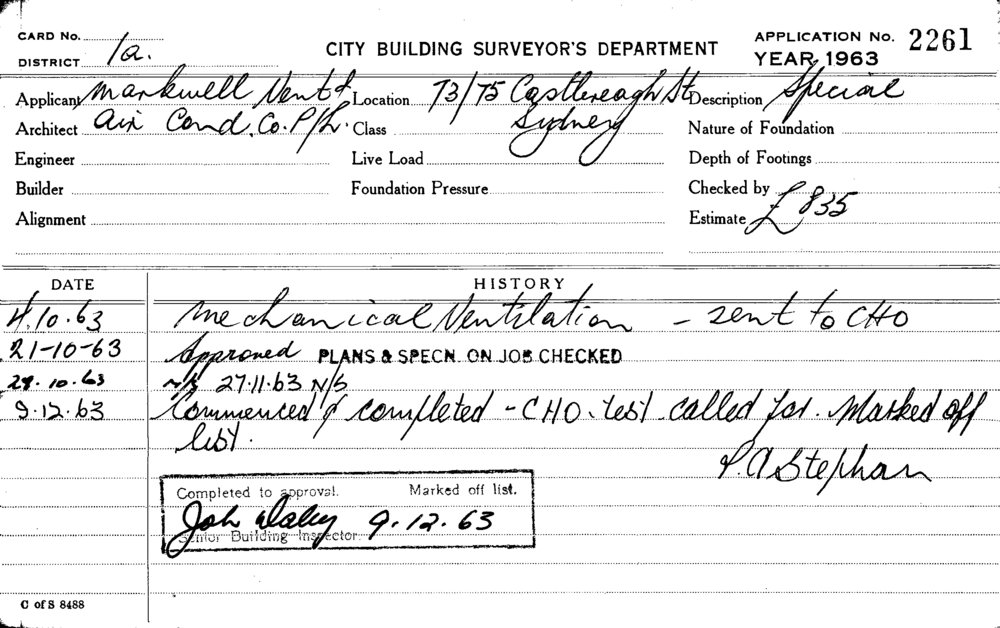 CARD No.
DISTRICT 1a.
CITY BUILDING SURVEYOR'S DEPARTMENT
APPLICATION No. 2261
YEAR 1963
Applicant Markwell Vent & Location 73/75 Castlereagh St Description Special
Architect Air Cond. Co. P/L. Class Sydney Nature of Foundation
Engineer Live Load Depth of Footings
Builder Foundation Pressure Checked by
Alignment Estimate £835
DATE HISTORY
4.10.63 Mechanical Ventilation - sent to CHO
21-10-63 Approved PLANS & SPECN. ON JOB CHECKED
29.10.63 27.11.63 N/S
9.12.63 Commenced & completed - CHO. test called for. Marked off
list.
P.A Stephan
Completed to approval. Marked off list.
Joh Daley 9.12.63
Senior Building Inspector
C of S 8488